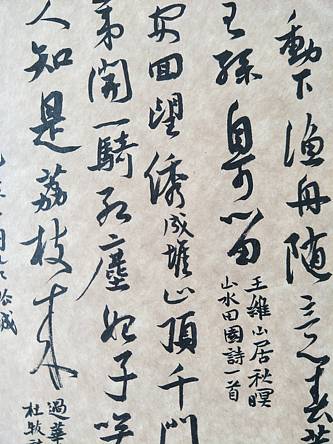 動下漁舟隨意春
王孫自可留
王維山居秋暝
山水田園詩一首
安回望繡成堆山頂千門
第開一騎紅塵妃子笑
人知是荔枝來
過華
杜牧